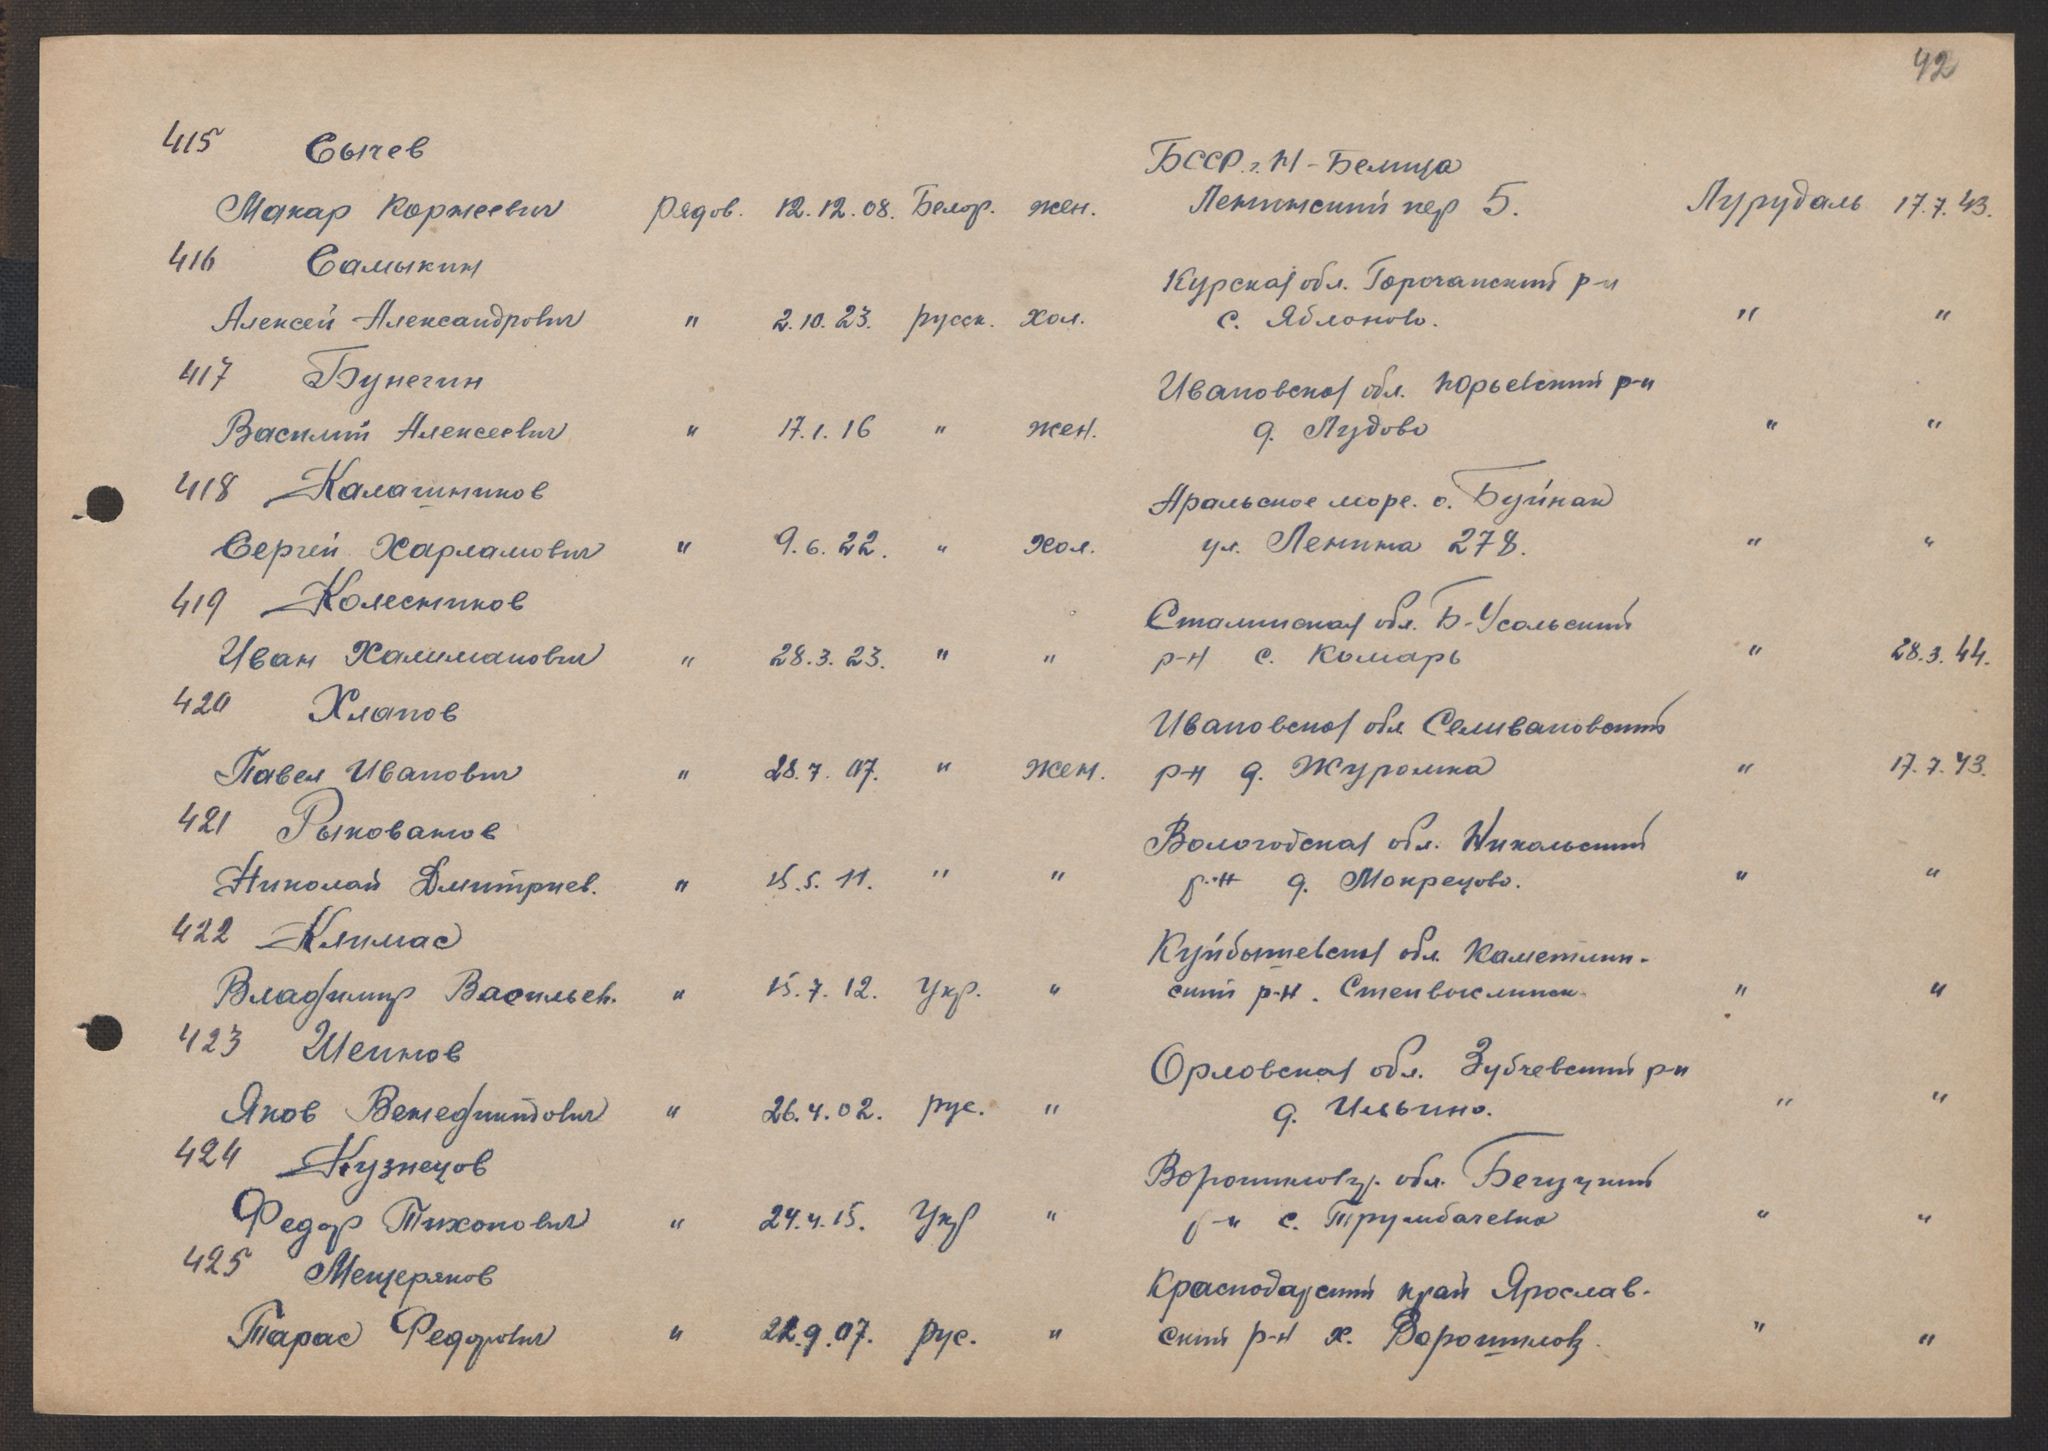 42
415 Сычев БССР. г. Н-Белица
Макар Корнеевич рядов. 12.12.08. Белор. жен. Ленинский пер 5. Лурудаль 17.7.43.
416 Самыкин Курская обл. Горочанский р-н
Алексей Александрович " 2.10.23. русск. хол. с. Яблоново. " "
417 Бунегин Ивановская обл. Юрьевский р-н
Василий Алексеевич " 17.1.16 " жен. д. Лудово " "
418 Калашников Аральское море. о. Буйнак
Сергей Харламович " 9.6.22. " хол. ул. Ленина 278. " "
419 Колесников Сталинская обл. Б-Усольский
Иван Халиманович " 28.3.23. " " р-н с. Комарь " 28.3.44.
420 Хлапов Ивановская обл. Селивановский
Павел Иванович " 28.7.07. " жен. р-н д. Журомка " 17.7.43.
421 Рыкованов Вологодская обл. Никольский
Николай Дмитриев. " 15.5.11. " " р-н д. Мокрецово. " "
422 Климас Куйбышевская обл. Каметлин-
Владимир Васильев. " 15.7.12. Укр. " ский р-н. " "
423 Шеинов Орловская обл. Зубчевский р-н
Яков Венедиктович " 26.4.02. рус. " д. Ильино. " "
424 Кузнецов Ворошиловгр. обл. Бегуцкий
Федор Тихонович " 24.4.15. Укр " р-н с. Трумбачевка " "
425 Мещеряков Краснодарский край Ярослав-
Тарас Федорович " 22.9.07. рус. " ский р-н х. Ворошилов. " "